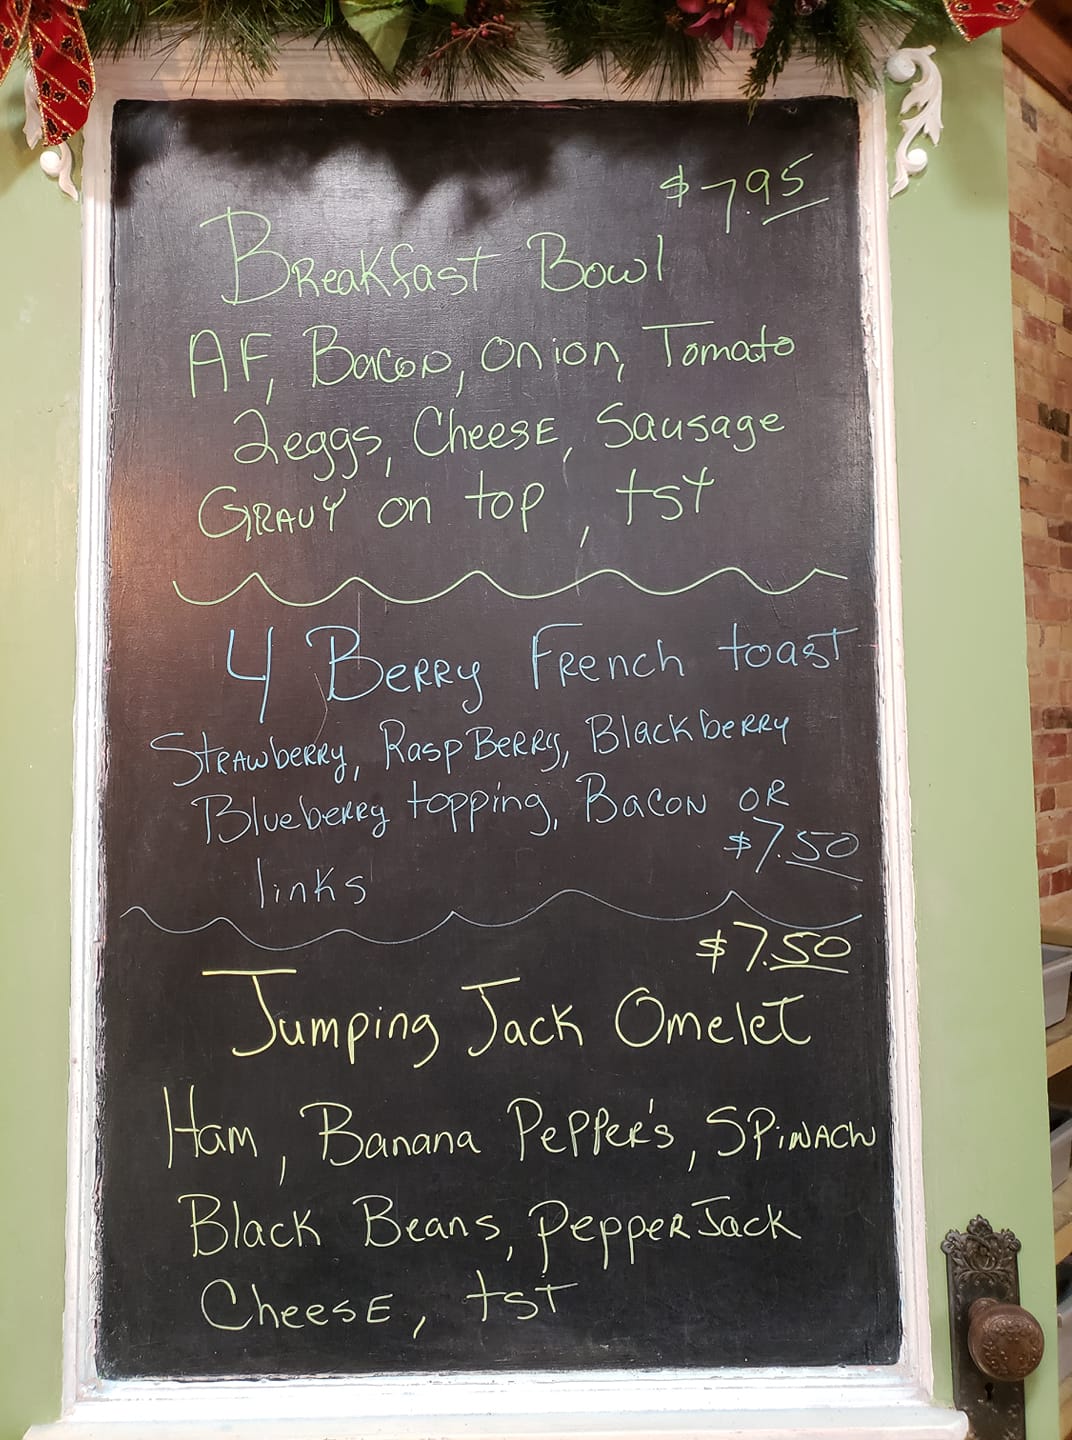 $7.95
Breakfast Bowl
AF, Bacon, onion, Tomato
2eggs, Cheese, Sausage
Gravy on top, tst
4 Berry French toast
Strawberry, RaspBerry, Blackberry
Blueberry topping, Bacon or
$7.50
links
$7.50
Jumping Jack Omelet
Ham, Banana Pepper's, Spinach
Black Beans, pepperJack
Cheese, tst